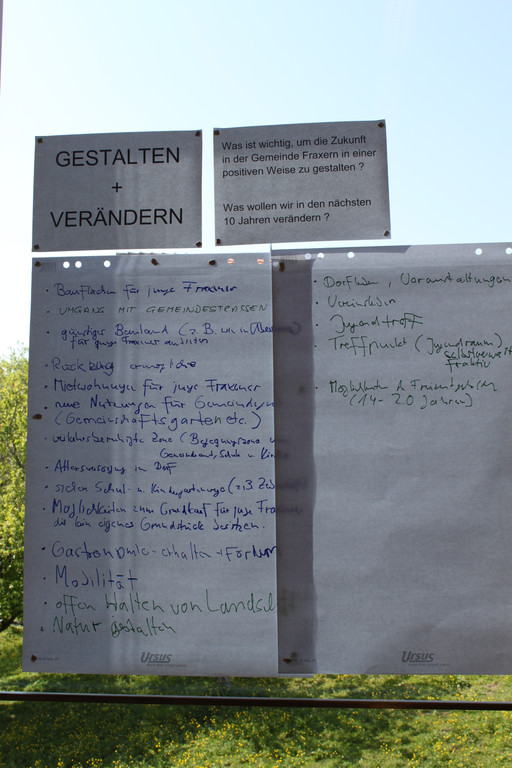 GESTALTEN
+
VERÄNDERN
Was ist wichtig, um die Zukunft
in der Gemeinde Fraxern in einer
positiven Weise zu gestalten ?
Was wollen wir in den nächsten
10 Jahren verändern ?
· Bauflächen für junge Fraxner
· UMGANG MIT GEMEINDESTRASSEN
· günstiges Bauland (z.B. wie in
für junge Fraxner anbieten
· Rückzug
· Mietwohnungen für junge Fraxner
· neue Nutzungen für
(Gemeinschaftsgarten etc.)
· verkehrsberuhigte Zone (Begegnungszone
Gemeindeamt, Schule u. Kin
· Altersversorgung im Dorf
· sicherer Schul- u. Kindergartenwege (z.B.
· Möglichkeiten zum Grundkauf für junge Fraxner
die kein eigenes Grundstück besitzen.
· Gastronomie erhalten + fördern
· Mobilität
· offen halten von Landsch
· Natur gestalten
Ursus
· Dorfleben, Veranstaltungen
· Vereinsleben
· Jugendtreff
· Treffpunkt (Jugendraum)
· Möglichkeiten
(14-20 Jahren)
Ursus